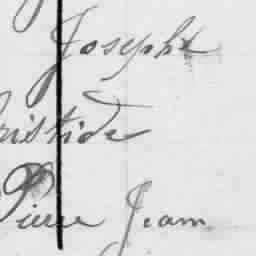 Joseph
ristide
Pierre Jean